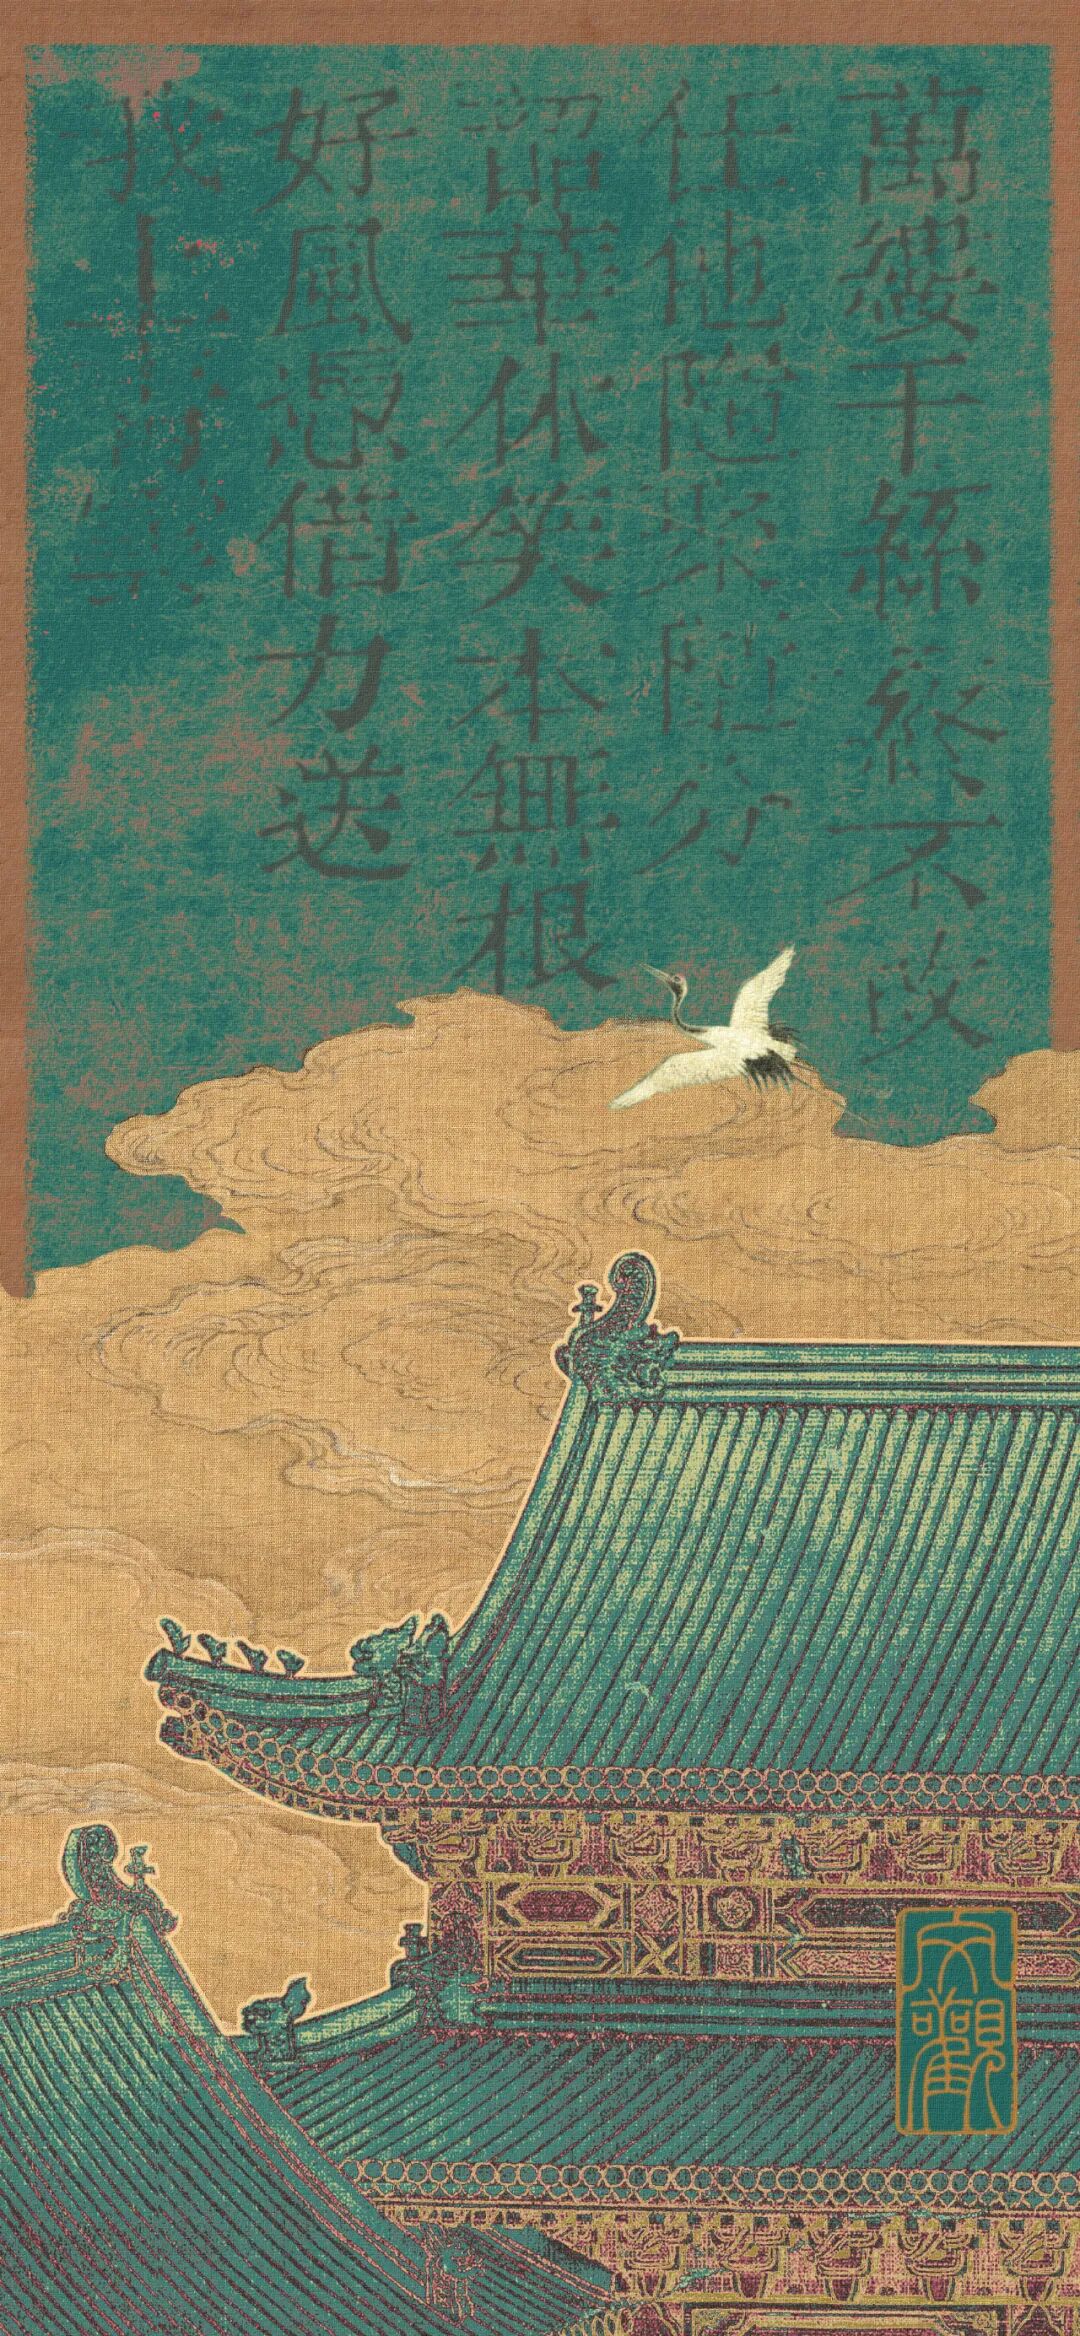 萬縷千絲終不改
任他隨聚隨分
韶華休笑本無根
好風憑借力送
我上青雲
觀